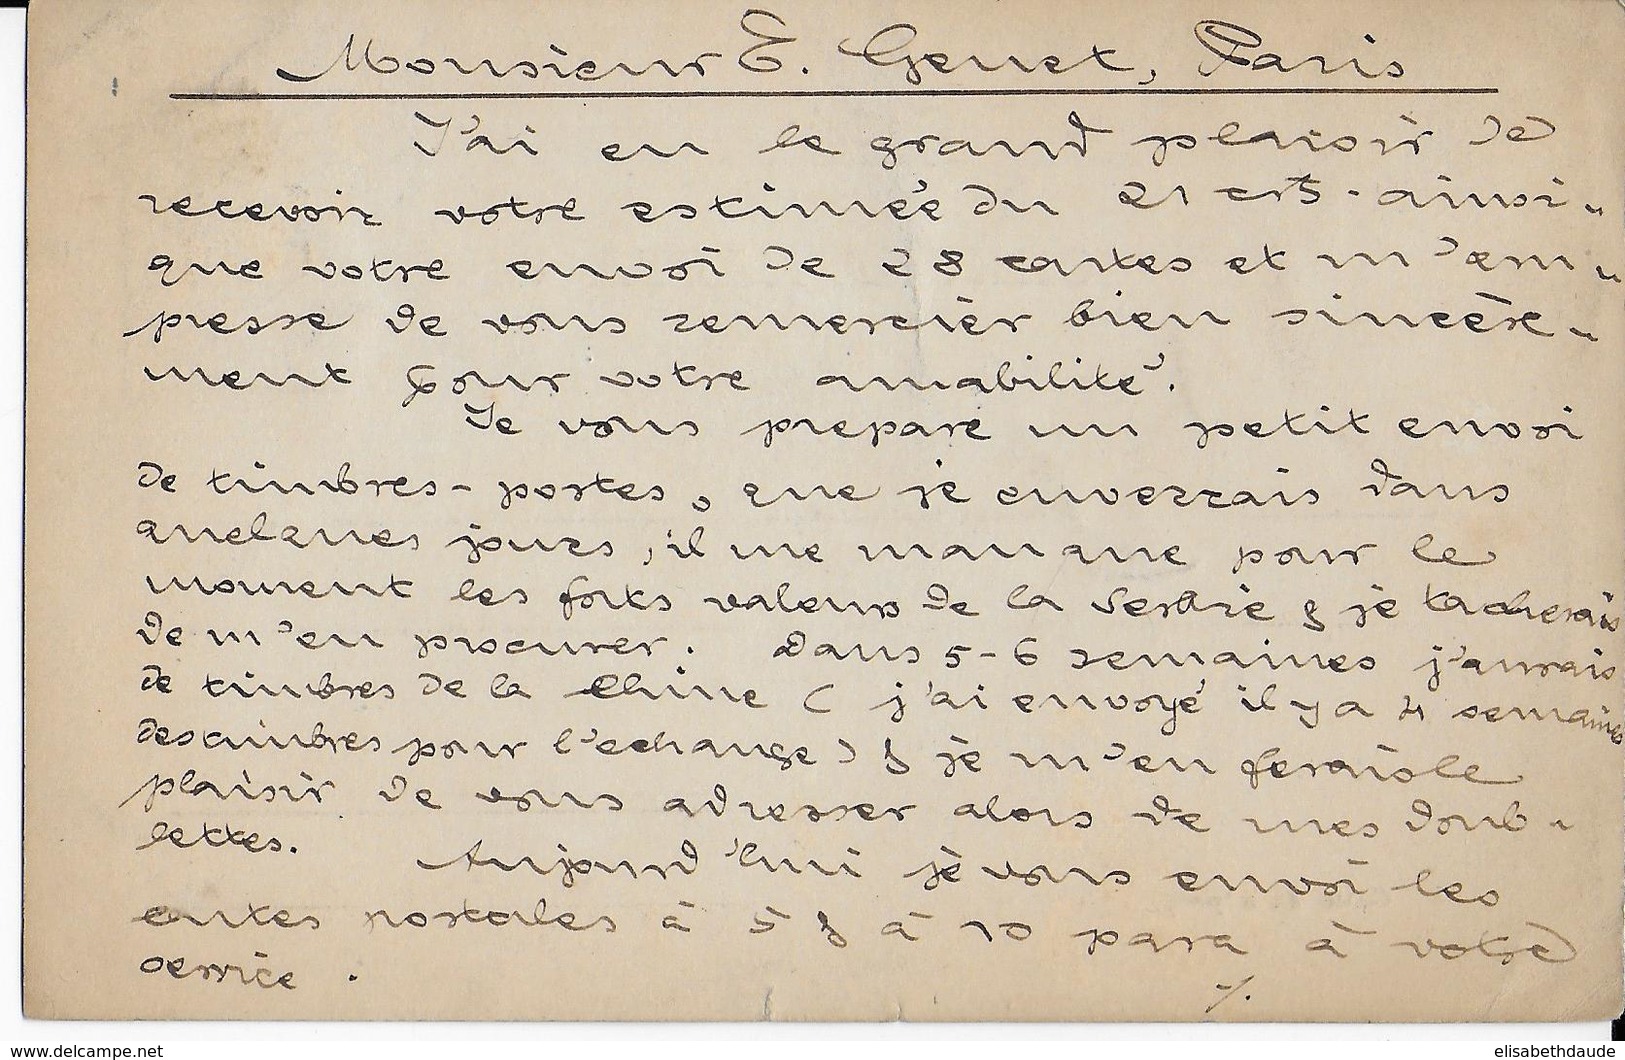 Monsieur E. Genet, Paris
J'ai eu le grand plaisir de
recevoir votre estimée du 21 crt. ainsi
que votre envoi de 28 cartes et m'em-
presse de vous remercier bien sincère-
ment pour votre amabilité.
Je vous prepare un petit envoi
de timbres-postes, que je enverrais dans
quelques jours, il me manque pour le
moment les forts valeurs de la Serbie & je tacherais
de m'en procurer. Dans 5-6 semaines j'aurais
de timbres de la Chine ( j'ai envoyé il y a 4 semaines
des timbres pour l'echange ) & je m'en ferais le
plaisir de vous adresser alors de mes doub-
lettes.
Aujourd'hui je vous envoi les
cartes postales à 5 & à 10 para à votre
service.
./.
www.delcampe.net
elisabethdaude